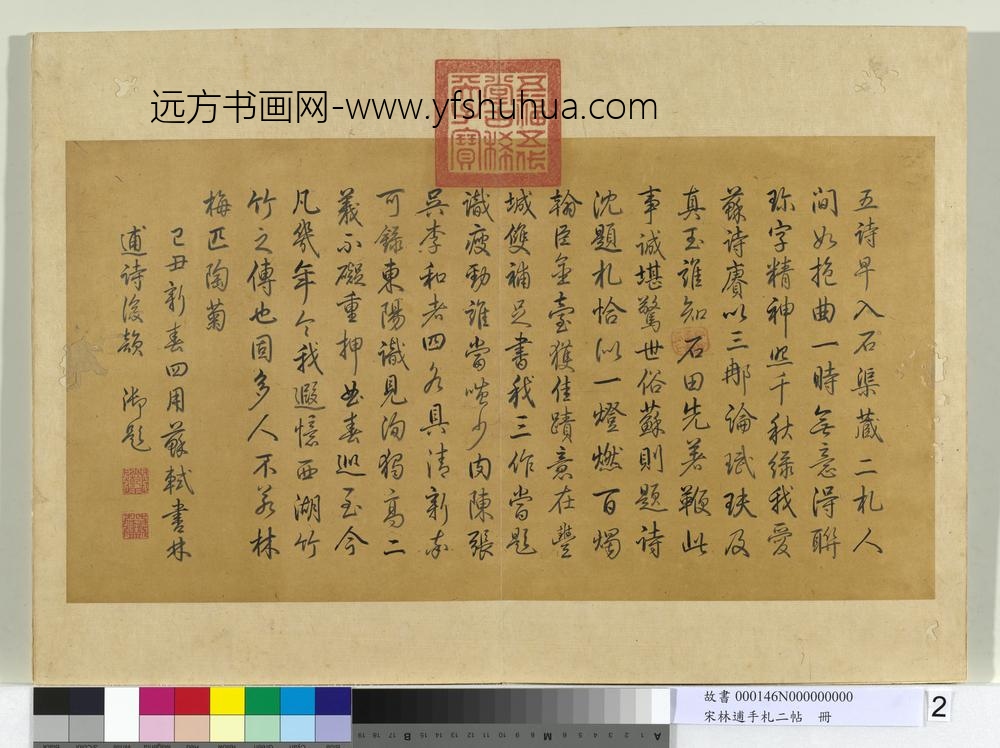 远方书画网-www.yfshuhua.com
五福五代
堂古稀
天子寶
五詩早入石渠蔵二札人
间如抱曲一時無意得聨
珎字精神照千秋緣我愛
蘇詩賡以三那論珷玞及
真玉誰知石田先着鞭此
事誠堪驚世俗蘇則題詩
沈題札恰似一燈燃百燭
翰臣金臺獲佳蹟意在豐
城雙補足書我三作當題
識瘦勁誰當嗤少肉陳張
吳李和者四各具清新奇
可錄東陽識見洵獨高二
義不礙重押曲春巡至今
凡幾年令我遐憶西湖竹
竹之傳也因多人不若林
梅匹陶菊
己丑新春四用蘇軾書林
逋詩後韻 御題
故書 000146N000000000
宋林逋手札二帖 冊
2